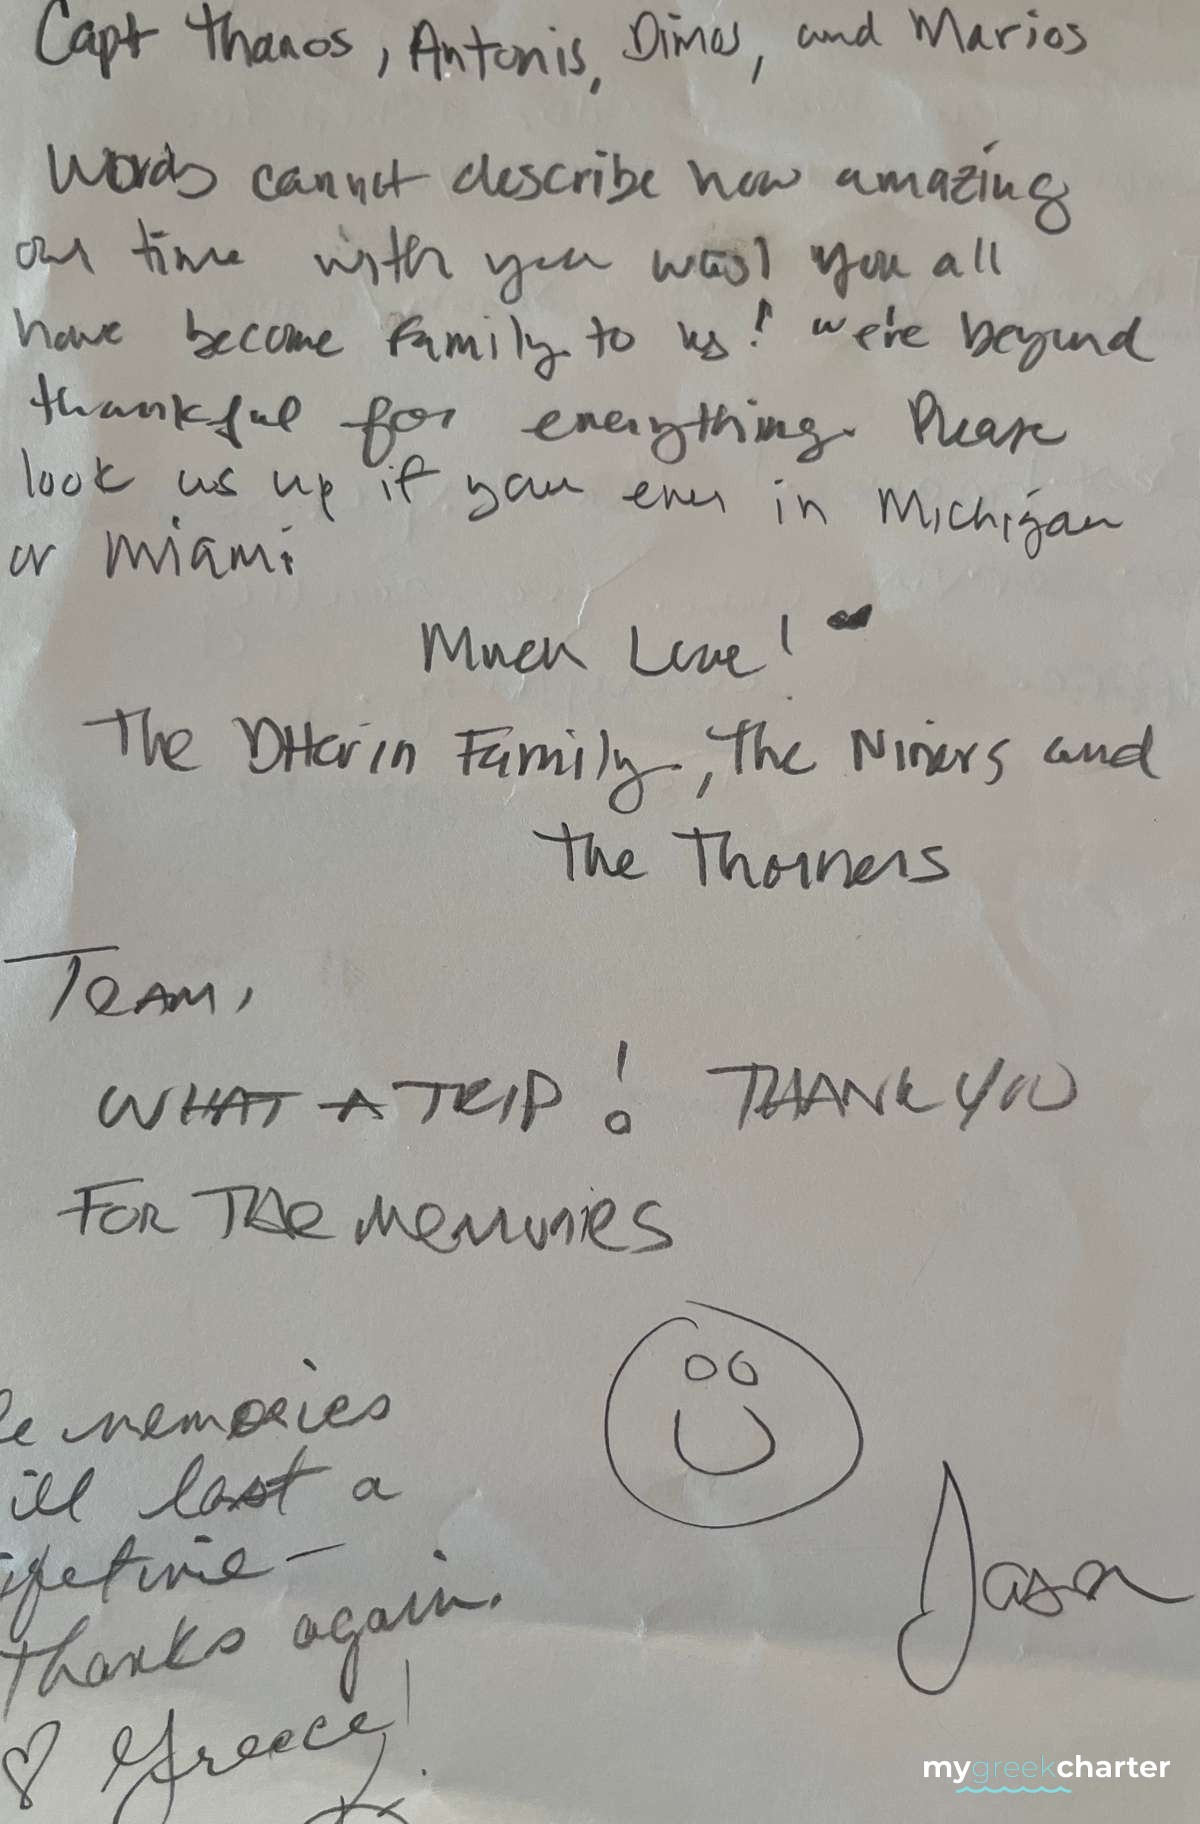 Capt Thanos, Antonis, Dimos, and Marios
Words cannot describe how amazing
our time with you was! You all
have become family to us! We're beyond
thankful for everything. Please
look us up if your ever in Michigan
or Miami
Much Love!
The DHarin Family, The Niners and
The Thorners
TEAM,
WHAT A TRIP! THANK YOU
FOR THE MEMORIES
memories
ill last a
ifetime –
Thanks again.
♡ Greece!
Jason
mygreekcharter